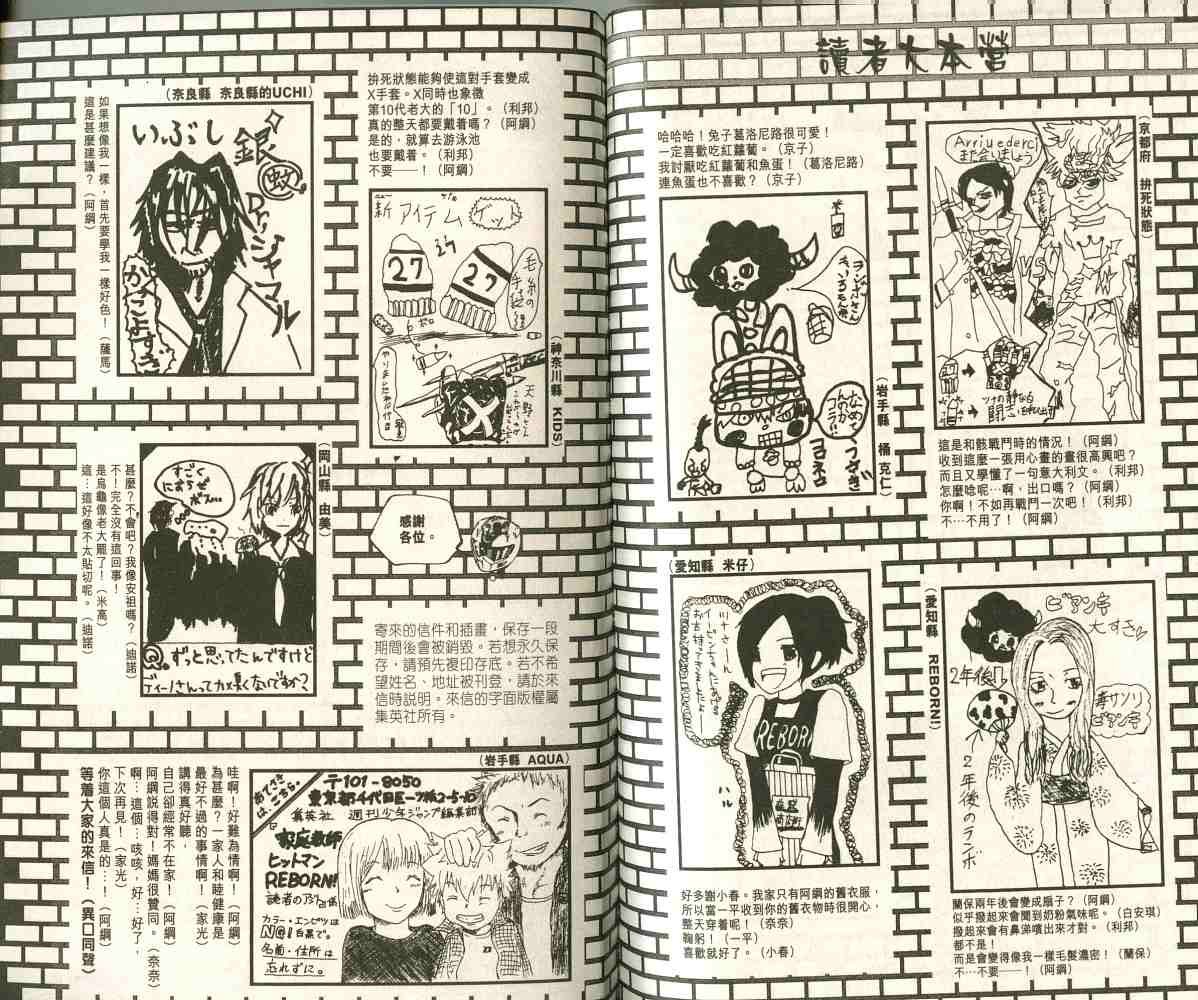 讀者大本營
(京都府　拚死狀態)
Arrivederci
また会いましょう
VS
這是和骸戰鬥時的情況！（阿綱）
收到這麼一張用心畫的畫很高興吧？
而且又學懂了一句意大利文。（利邦）
怎麼唸呢…啊，出口嗎？（阿綱）
你啊！不如再戰鬥一次吧！（利邦）
不…不用了！（阿綱）
哈哈哈！兔子葛洛尼路很可愛！
一定喜歡吃紅蘿蔔。（京子）
我討厭吃紅蘿蔔和魚蛋！（葛洛尼路）
連魚蛋也不喜歡？（京子）
(岩手縣　橘 克仁)
(愛知縣　REBORN!)
ビアンキ
大すき
2年後
毒サソリ
ビアンキ
2年後のランボ
蘭保兩年後會變成扇子？（阿綱）
似乎撥起來會聞到奶粉氣味呢。（白安琪）
撥起來會有鼻涕噴出來才對。（利邦）
都不是！
而是會變得像我一樣毛髮濃密！（蘭保）
不…不要──！（阿綱）
(愛知縣　米仔)
REBORN
ハル
好多謝小春。我家只有阿綱的舊衣服，
所以當一平收到你的舊衣物時很開心，
整天穿着呢！（奈奈）
鞠躬！（一平）
喜歡就好了。（小春）
拚死狀態能夠使這對手套變成
X手套。X同時也象徵
第10代老大的「10」。（利邦）
真的整天都要戴着嗎？（阿綱）
是的，就算去游泳池
也要戴着。（利邦）
不要──！（阿綱）
新アイテム
ゲット
27
27
毛糸の手袋
X
(神奈川縣　KIDS)
(奈良縣　奈良縣的UCHI)
いぶし
銀
蚊
Dr.シャマル
かっこよすぎ
如果想像我一樣，首先要學我一樣好色！（薩馬）
這是甚麼建議？（阿綱）
感謝
各位。
(岡山縣　由美)
すごく
にあうぜ
ボス…
Q.ずっと思ってたんですけど
ディーノさんってカメ臭くないですか？
甚麼？不會吧？我像安祖嗎？（迪諾）
不！完全沒有這回事！
是烏龜像老大罷了！（米高）
這…這好像不太貼切呢。（迪諾）
寄來的信件和插畫，保存一段
期間後會被銷毀。若想永久保
存，請預先複印存底。若不希
望姓名、地址被刊登，請於來
信時說明。來信的字面版權屬
集英社所有。
(岩手縣　AQUA)
あてさきはこちら。
〒101-8050
東京都千代田区一ツ橋2-5-10
集英社　週刊少年ジャンプ編集部
家庭教師
ヒットマン
REBORN!
読者のアジト係
カラー・エンピツは
NG！白黒で。
名前・住所は
忘れずに。
哇啊！好難為情啊！（阿綱）
為甚麼？一家人和睦健康是
最好不過的事情啊！（家光）
講得真好聽，
自己卻經常不在家！（阿綱）
阿綱說得對！媽媽很贊同。（奈奈）
啊…這個…咳咳，好…好了，
下次再見！（家光）
你這個人真是的…！（阿綱）
等着大家的來信！（異口同聲）